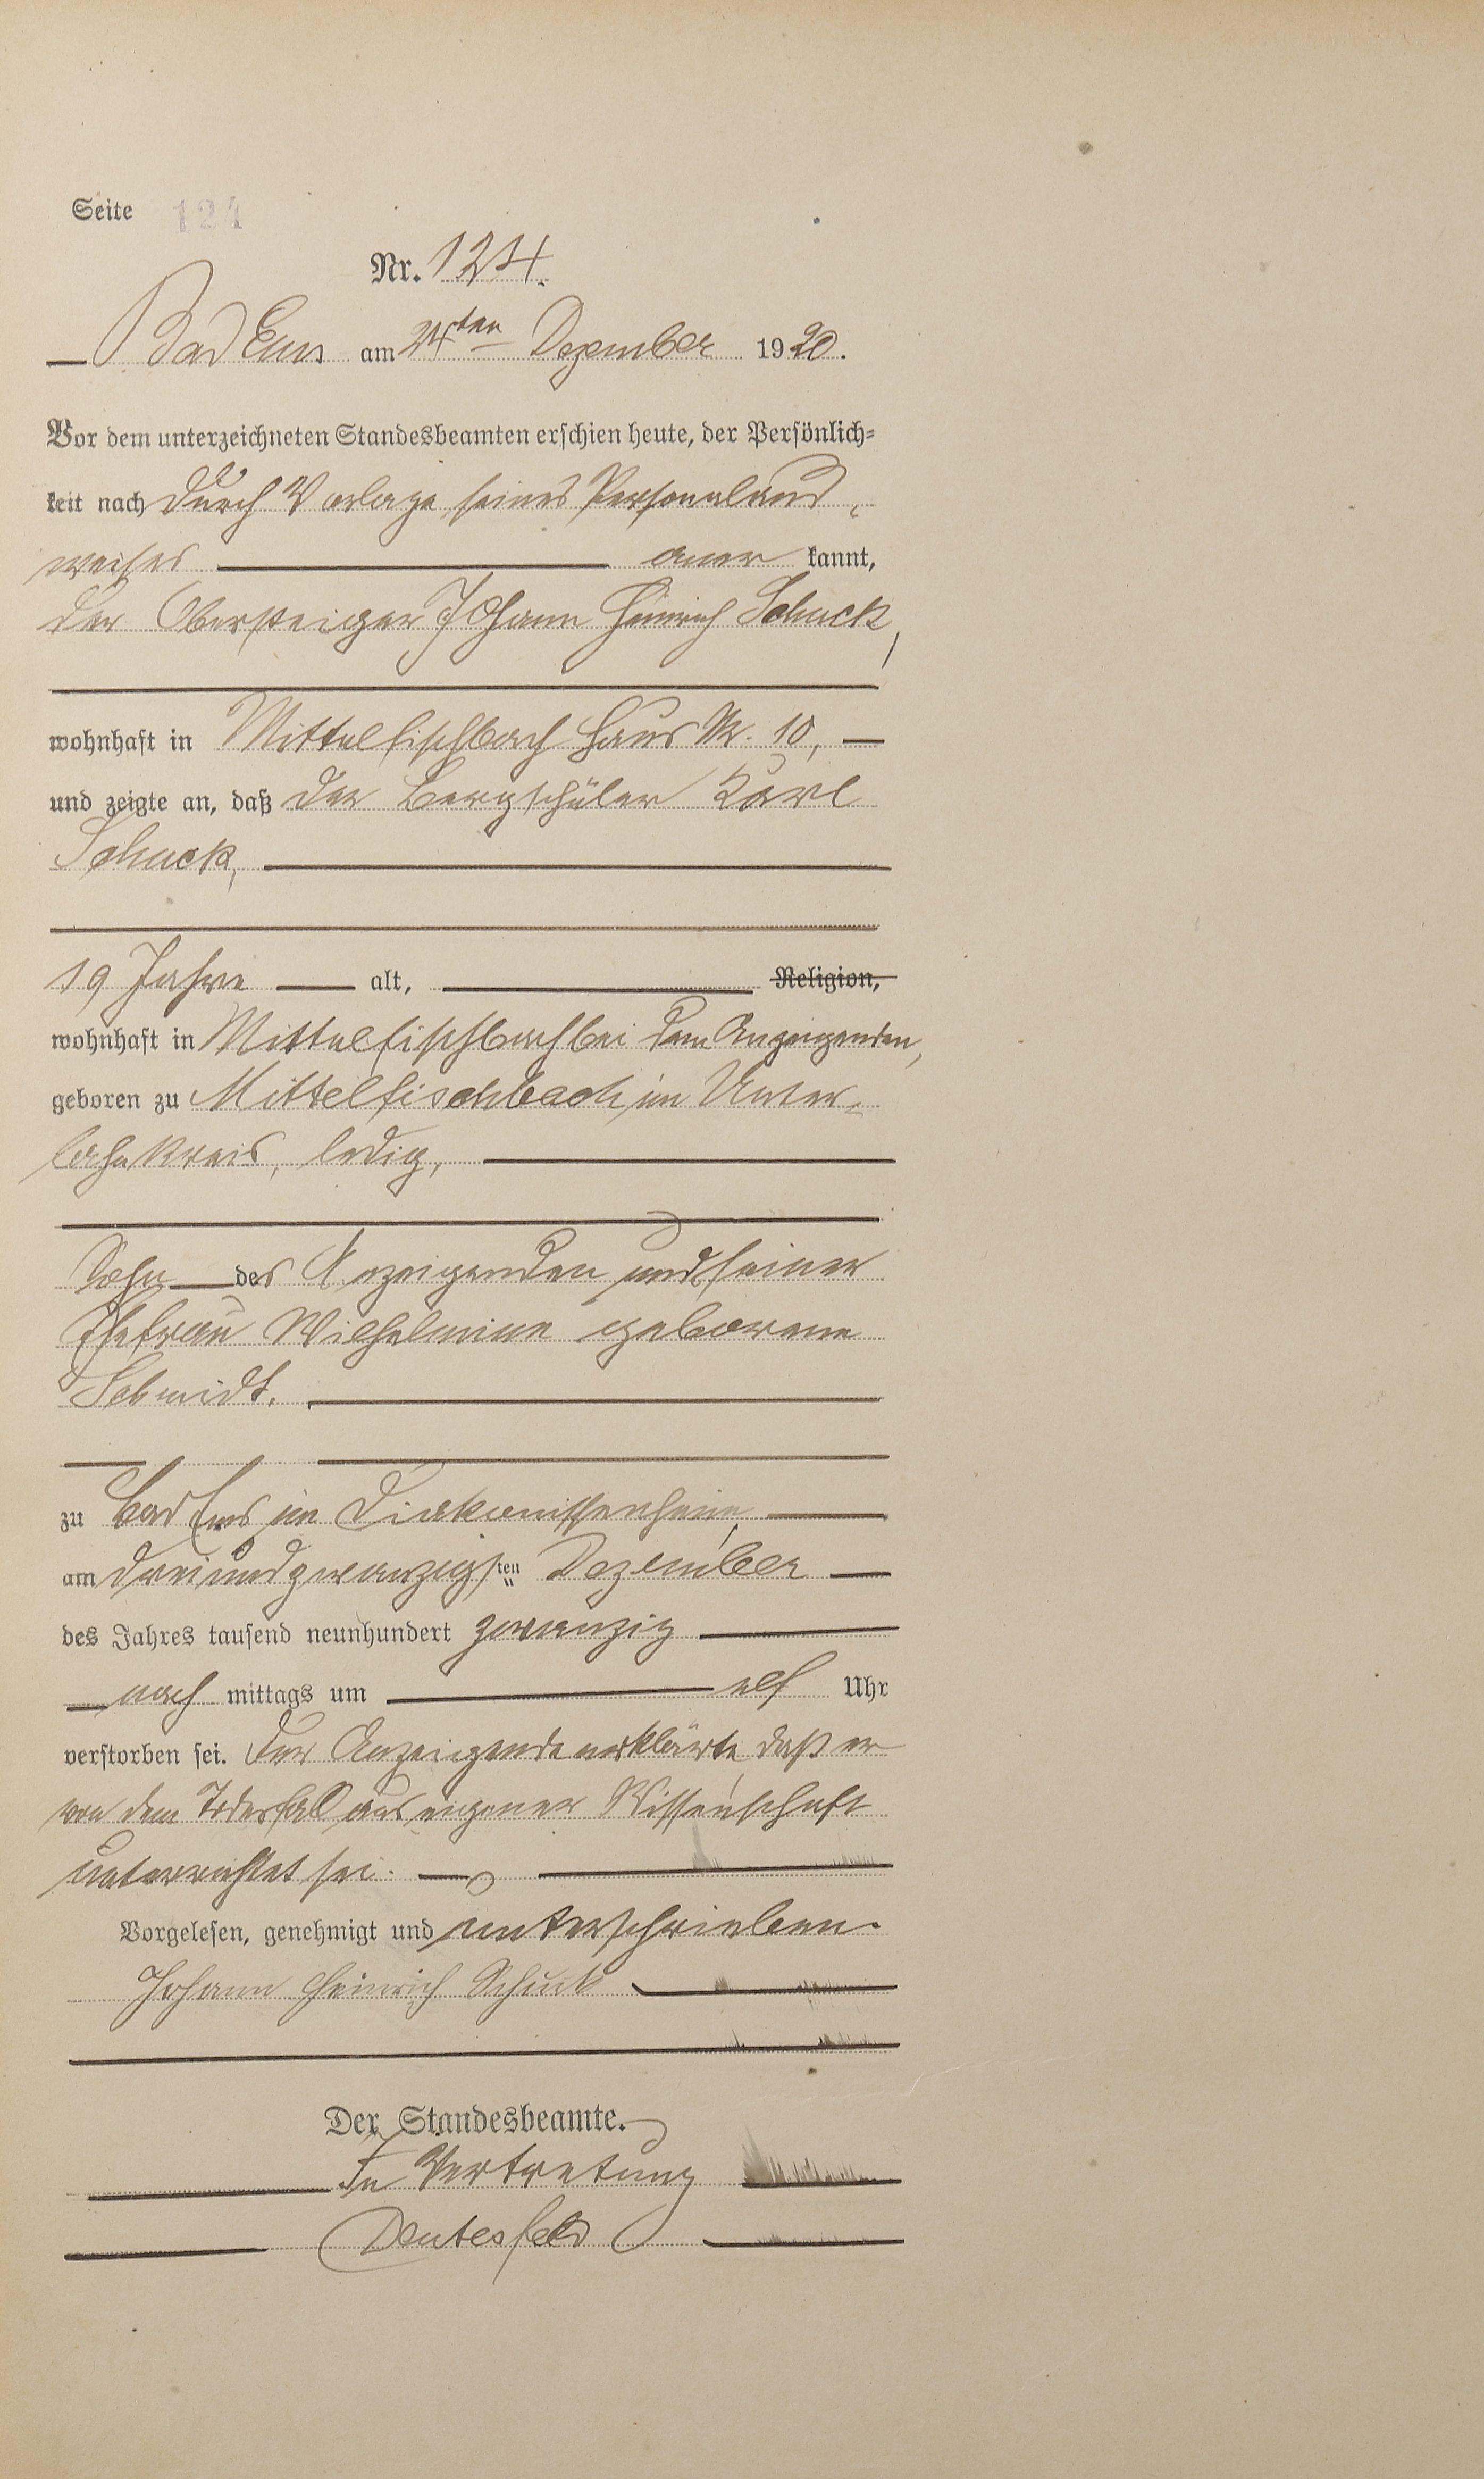 Seite 124
Nr. 124.
Bad Ems am 24ten Dezember 1920.
Vor dem unterzeichneten Standesbeamten erschien heute, der Persönlich-
keit nach durch Vorlage seines Personalaus-
weises aner kannt,
der Obersteiger Johann Heinrich Schuck,
wohnhaft in Mittelfischbach Haus Nr. 10,
und zeigte an, daß der Bergschüler Karl
Schuck,
19 Jahre alt, Religion,
wohnhaft in Mittelfischbach bei dem Anzeigenden,
geboren zu Mittelfischbach im Unter-
lahnkreis, ledig,
Sohn des Anzeigenden und seiner
Ehefrau Wilhelmine geborene
Schmidt.
zu Bad Ems im Diakonissenheim
am dreiundzwanzigsten Dezember
des Jahres tausend neunhundert zwanzig
nach mittags um elf Uhr
verstorben sei. Der Anzeigende erklärte, daß er
von dem Todesfall aus eigener Wissenschaft
unterrichtet sei.
Vorgelesen, genehmigt und unterschrieben.
Johann Heinrich Schuck
Der Standesbeamte.
In Vertretung